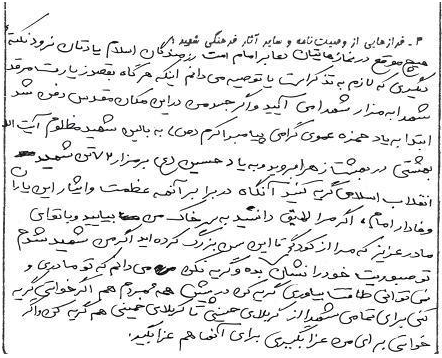 ۳- فرازهایی از وصیت نامه و سایر آثار فرهنگی شهید:
هیچ موقع در نمازهایتان دعا بر امام امت رزمندگان اسلام یادتان نرود نکته
دیگری که لازم به تذکر است یا توصیه می دانم اینکه هرگاه بقصد زیارت مرقد
شهدا به مزار شهدا می آیید و اگر جسد من در این مکان مقدس دفن شد
ابتدا به یاد حمزه عموی گرامی پیامبر اکرم (ص) به بالین شهید مظلوم آیت الله
بهشتی در بهشت زهرا بروید و به یاد حسین (ع) بر مزار ۷۲ تن شهید
انقلاب اسلامی گریه کنید آنگاه در برابر آنهمه عظمت و ایثار این یاران
وفادار امام، اگر مرا لایق دانستید بر خاک من بیایید و
مادر عزیز که مرا از کودکی تا این سن بزرگ کرده اید اگر من شهید شدم
تو صبوریت خود را نشان بده و گریه نکن می دانم که تو مادری و
نمی توانی طاقت بیاوری گریه کن در پیش همه مردم هم اگر خواستی گریه
کنی برای تمامی شهدا از کربلای حسینی تا کربلای خمینی هم گریه کن و اگر
خواستی برای من عزا بگیری برای آنها هم عزا بگیر.